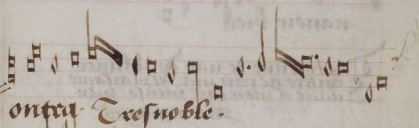 ontra Tresnoble.